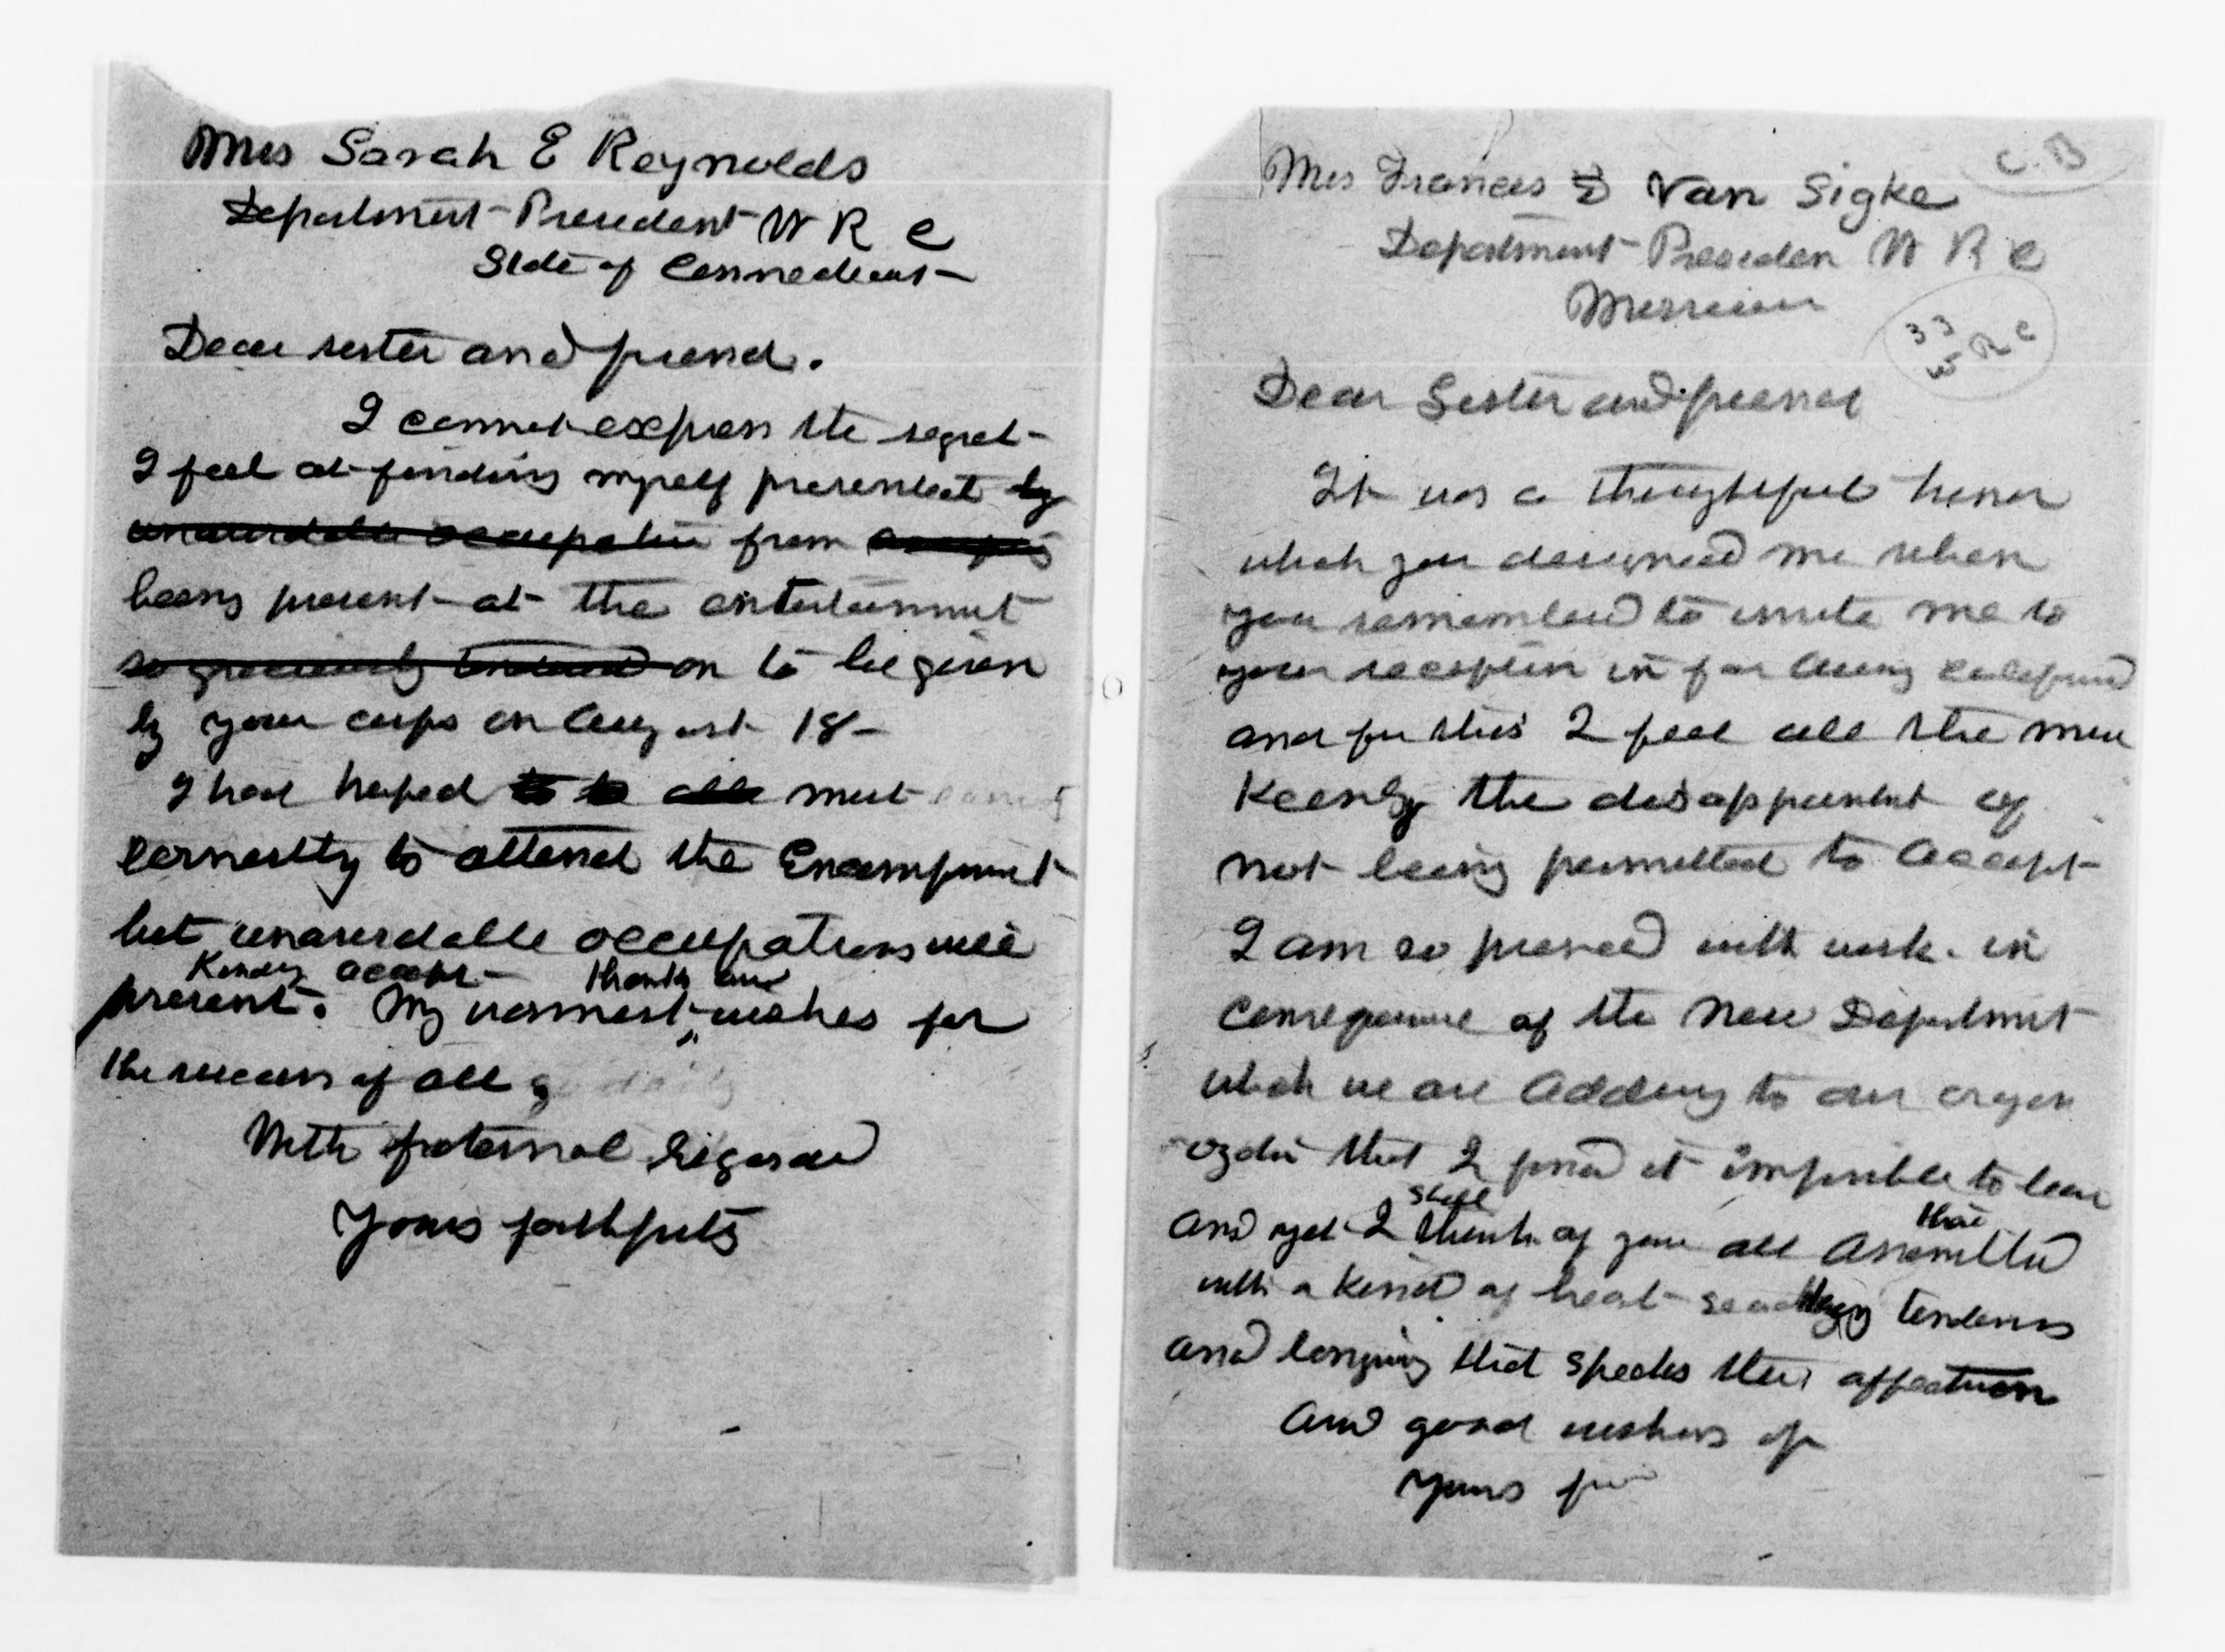 Mrs Sarah E Reynolds
Department President W R C
State of Connecticut
Dear sister and friend.
I cannot express the regret
I feel at finding myself prevented by
unavoidable occupation from
being present at the entertainment
so graciously tendered on to be given
by your corps on August 18-
I had hoped to to able most
earnestly to attend the Encampment
but unavoidable occupations will
Kindly accept thanks and
prevent. My warmest wishes for
the success of all
With fraternal regard
Yours faithfully
C. B
Mrs Frances D Van Sigke
Department Presiden W R C
Missouri
33
W R C
Dear Sister and friend
It was a thoughtful honor
which you designed me when
you remembered to invite me to
your reception in far away
and for this I feel all the more
keenly the disappointment of
not being permitted to accept
I am so pressed with work. in
consequence of the New Department
which we are adding to our organ
ization that I find it impossible to leave
shall there
And yet I think of you all assembled
with a kind of heart tenderness
and longing that speaks the affection
and good wishes of
Yours